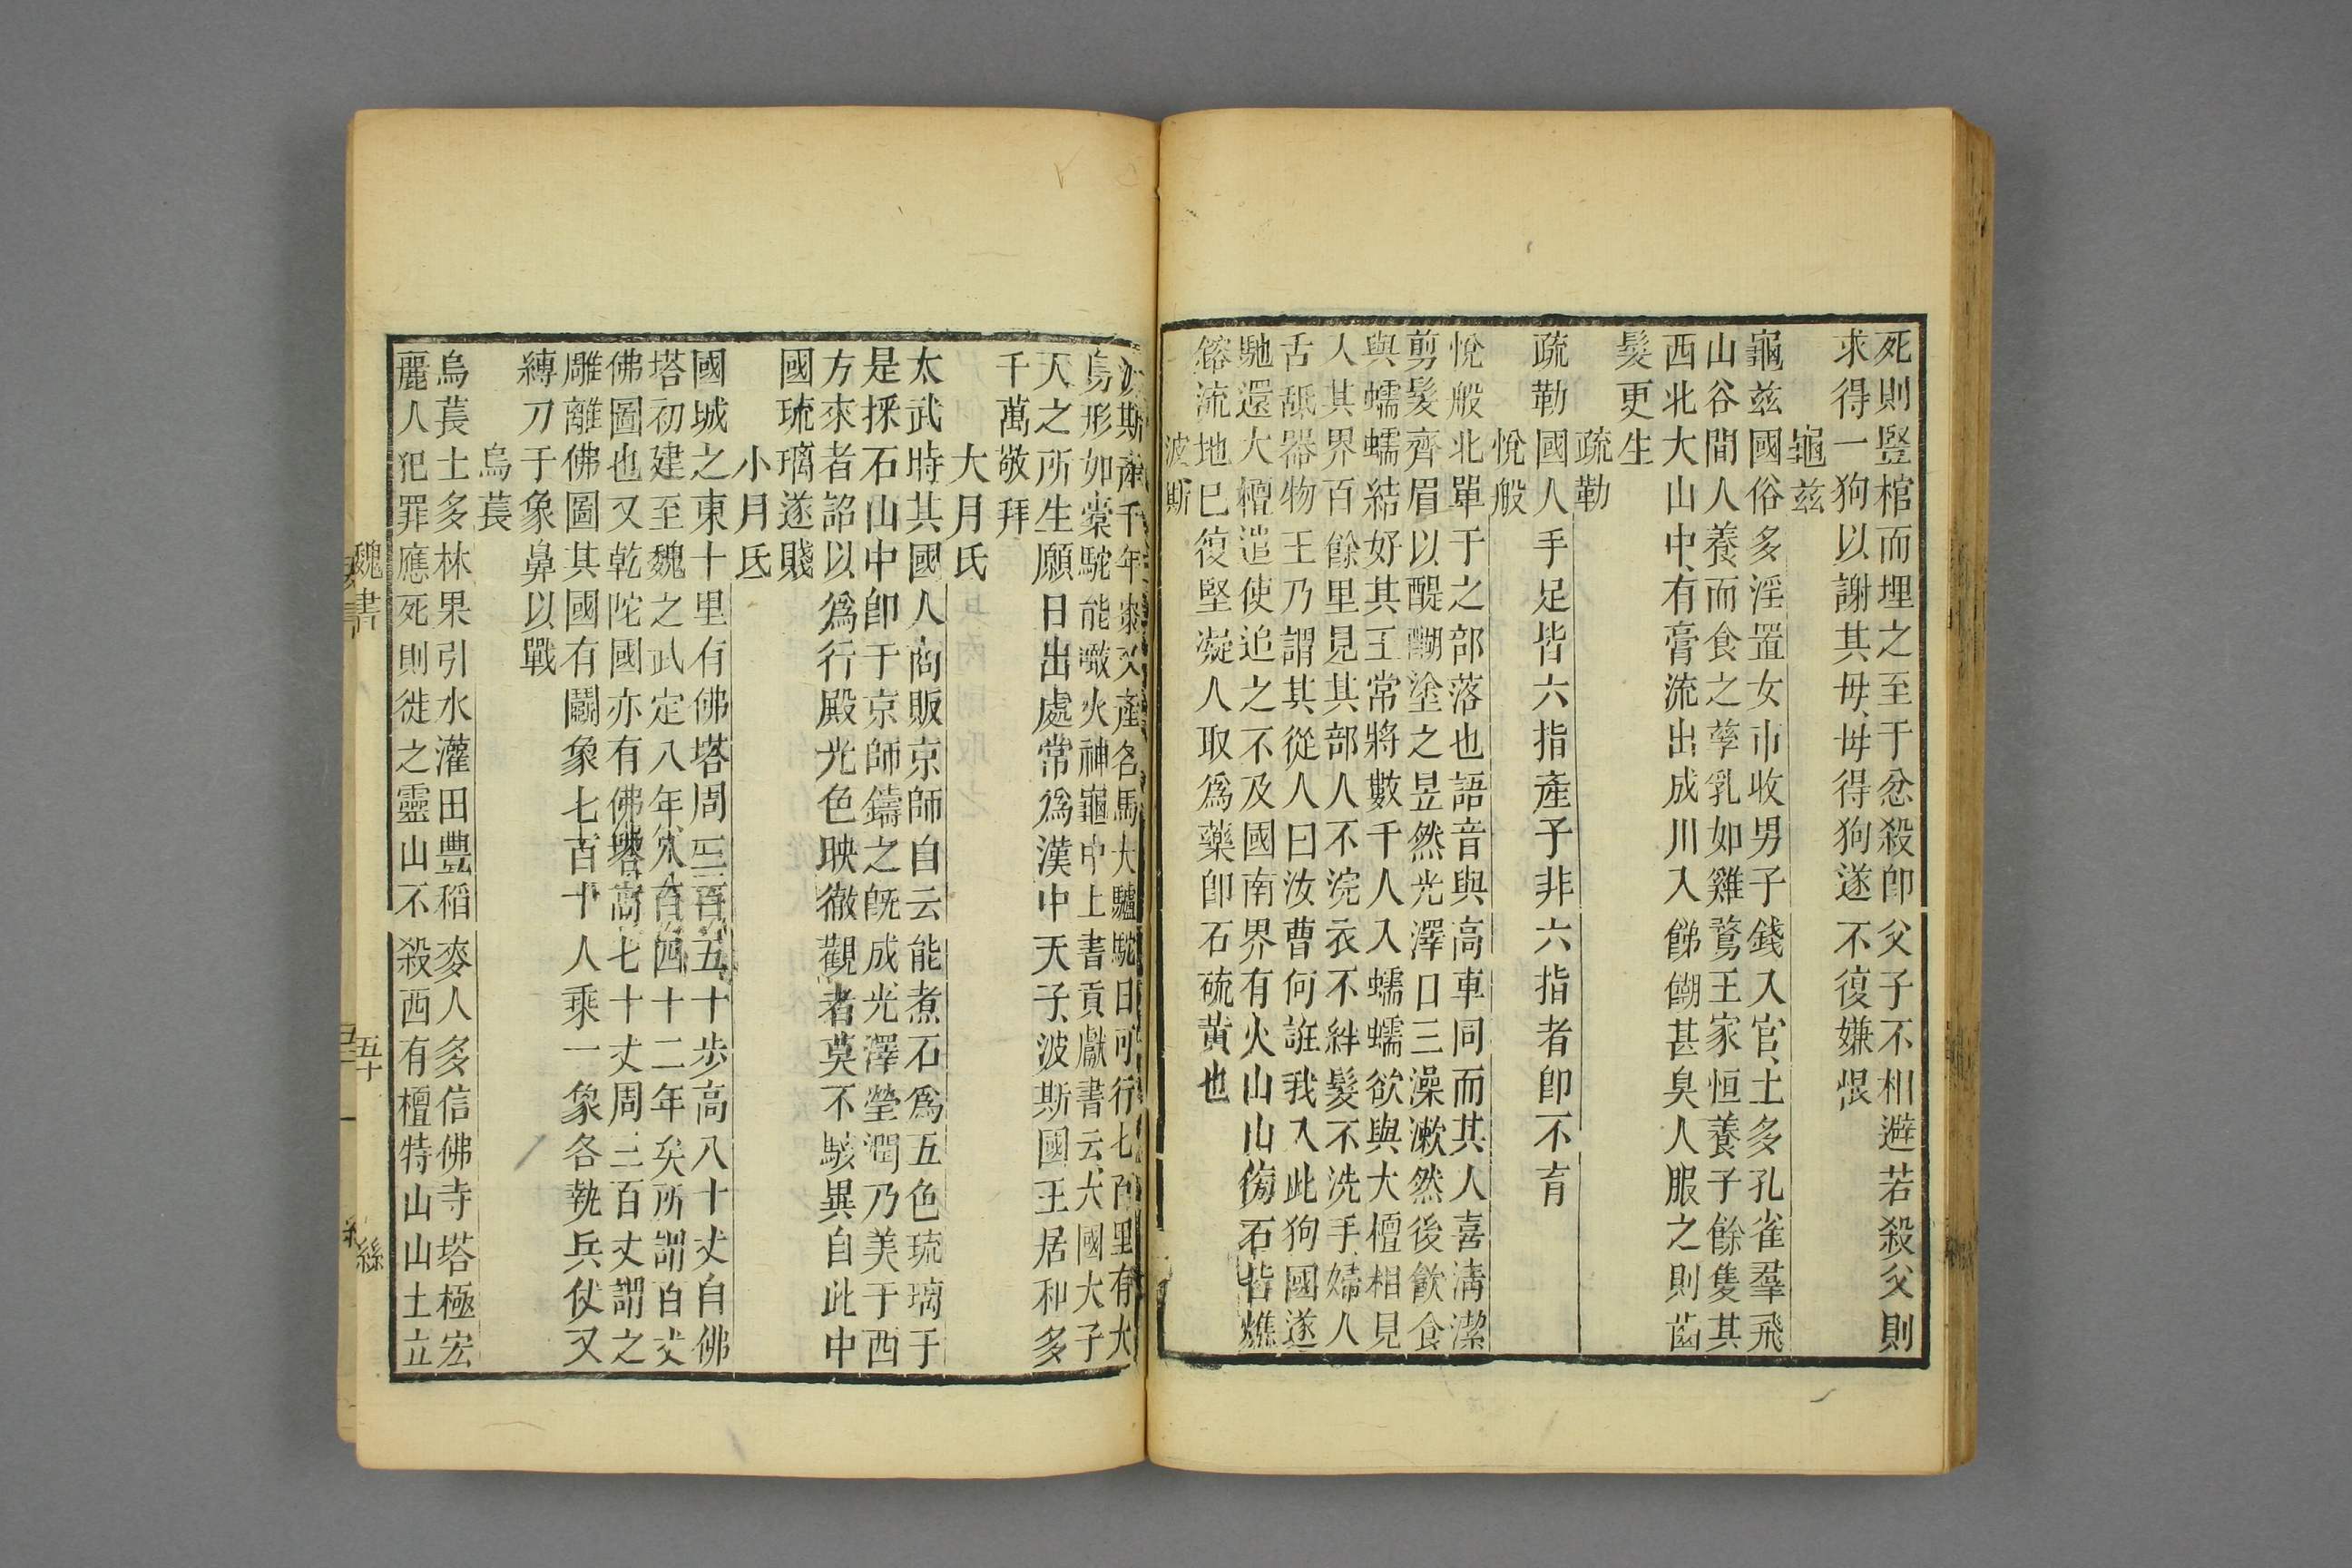 死則豎棺而埋之至于忿殺卽父子不相避若殺父則
求得一狗以謝其母母得狗遂不復嫌恨
龜玆
龜玆國俗多淫置女市收男子錢入官土多孔雀羣飛
山谷間人養而食之孳乳如雞鶩王家恒養子餘隻其
西北大山中有膏流出成川入餙餬甚臭人服之則齒
髮更生
疏勒
疏勒國人手足皆六指產子非六指者卽不育
悅般
悅般北單于之部落也語音與高車同而其人喜淸潔
剪髮齊眉以醍醐塗之昱然光澤口三澡漱然後飮食
與蠕蠕結好其王常將數千人入蠕蠕欲與大檀相見
人其界百餘里見其部人不浣衣不絆髮不洗手婦人
舌䑛器物王乃謂其從人曰汝曹何誑我入此狗國遂
馳還大檀遣使追之不及國南界有火山山傍石皆燋
鎔流地巳復堅凝人取爲藥卽石硫黃也
波斯
波斯 千年 又產名馬大驢駝日可行七百里有大
鳥形如橐駝能噉火神龜中上書貢獻書云大國大子
天之所生願日出處常爲漢中天子波斯國王居和多
千萬敬拜
大月氏
太武時其國人商販京師自云能煮石爲五色琉璃于
是採石山中卽于京師鑄之旣成光澤瑩潤乃美于西
方來者詔以爲行殿光色映徹觀者莫不駭異自此中
國琉璃遂賤
小月氏
國城之東十里有佛塔周三百五十步高八十丈自佛
塔初建至魏之武定八年八百四十二年矣所謂百丈
佛圖也又乾陀國亦有佛塔高七十丈周三百丈謂之
雕離佛圖其國有鬭象七百十人乘一象各執兵仗又
縛刀于象鼻以戰
烏萇
烏萇土多林果引水灌田豐稻麥人多信佛寺塔極宏
麗人犯罪應死則徙之靈山不殺西有檀特山山土立
魏書
五十
絲